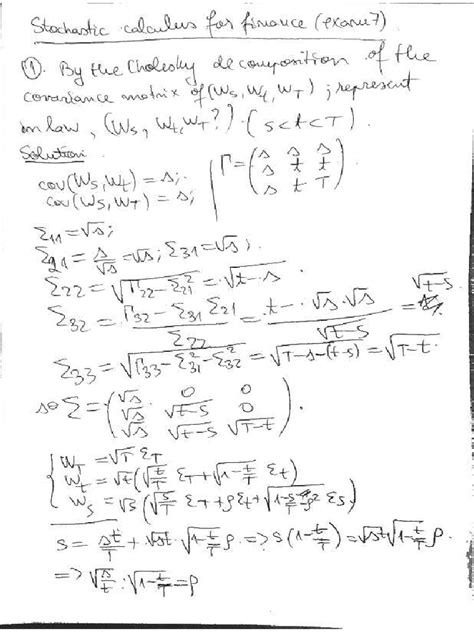 Stochastic calculus for finance (exam 7)
① By the Cholesky decomposition of the
covariance matrix of (W_s, W_t, W_T); represent
in law, (W_s, W_t, W_T?). (s<t<T).
Solution:
cov(W_s, W_t) = s;
cov(W_s, W_T) = s;
Γ = ( s s s
s t t
s t T )
Σ_11 = √s;
Σ_21 = s/√s = √s; Σ_31 = √s;
Σ_22 = √(Γ_22 - Σ_21^2) = √(t-s).
Σ_32 = (Γ_32 - Σ_31 Σ_21)/Σ_22 = (t - √s.√s)/√(t-s) = √(t-s)
Σ_33 = √(Γ_33 - Σ_31^2 - Σ_32^2) = √(T-s-(t-s)) = √(T-t).
so Σ = ( √s 0 0
√s √(t-s) 0
√s √(t-s) √(T-t) ).
{ W_T = √T ε_T
W_t = √t(√(t/T) ε_T + √(1-t/T) ε_t)
W_s = √s(√(s/T) ε_T + ρε_t + √(1-s/T-ρ^2) ε_s)
s = st/T + √st √(1-t/T) ρ => s(1-t/T) = √st √(1-t/T) ρ.
=> √(s/t) : √(1-t/T) = ρ